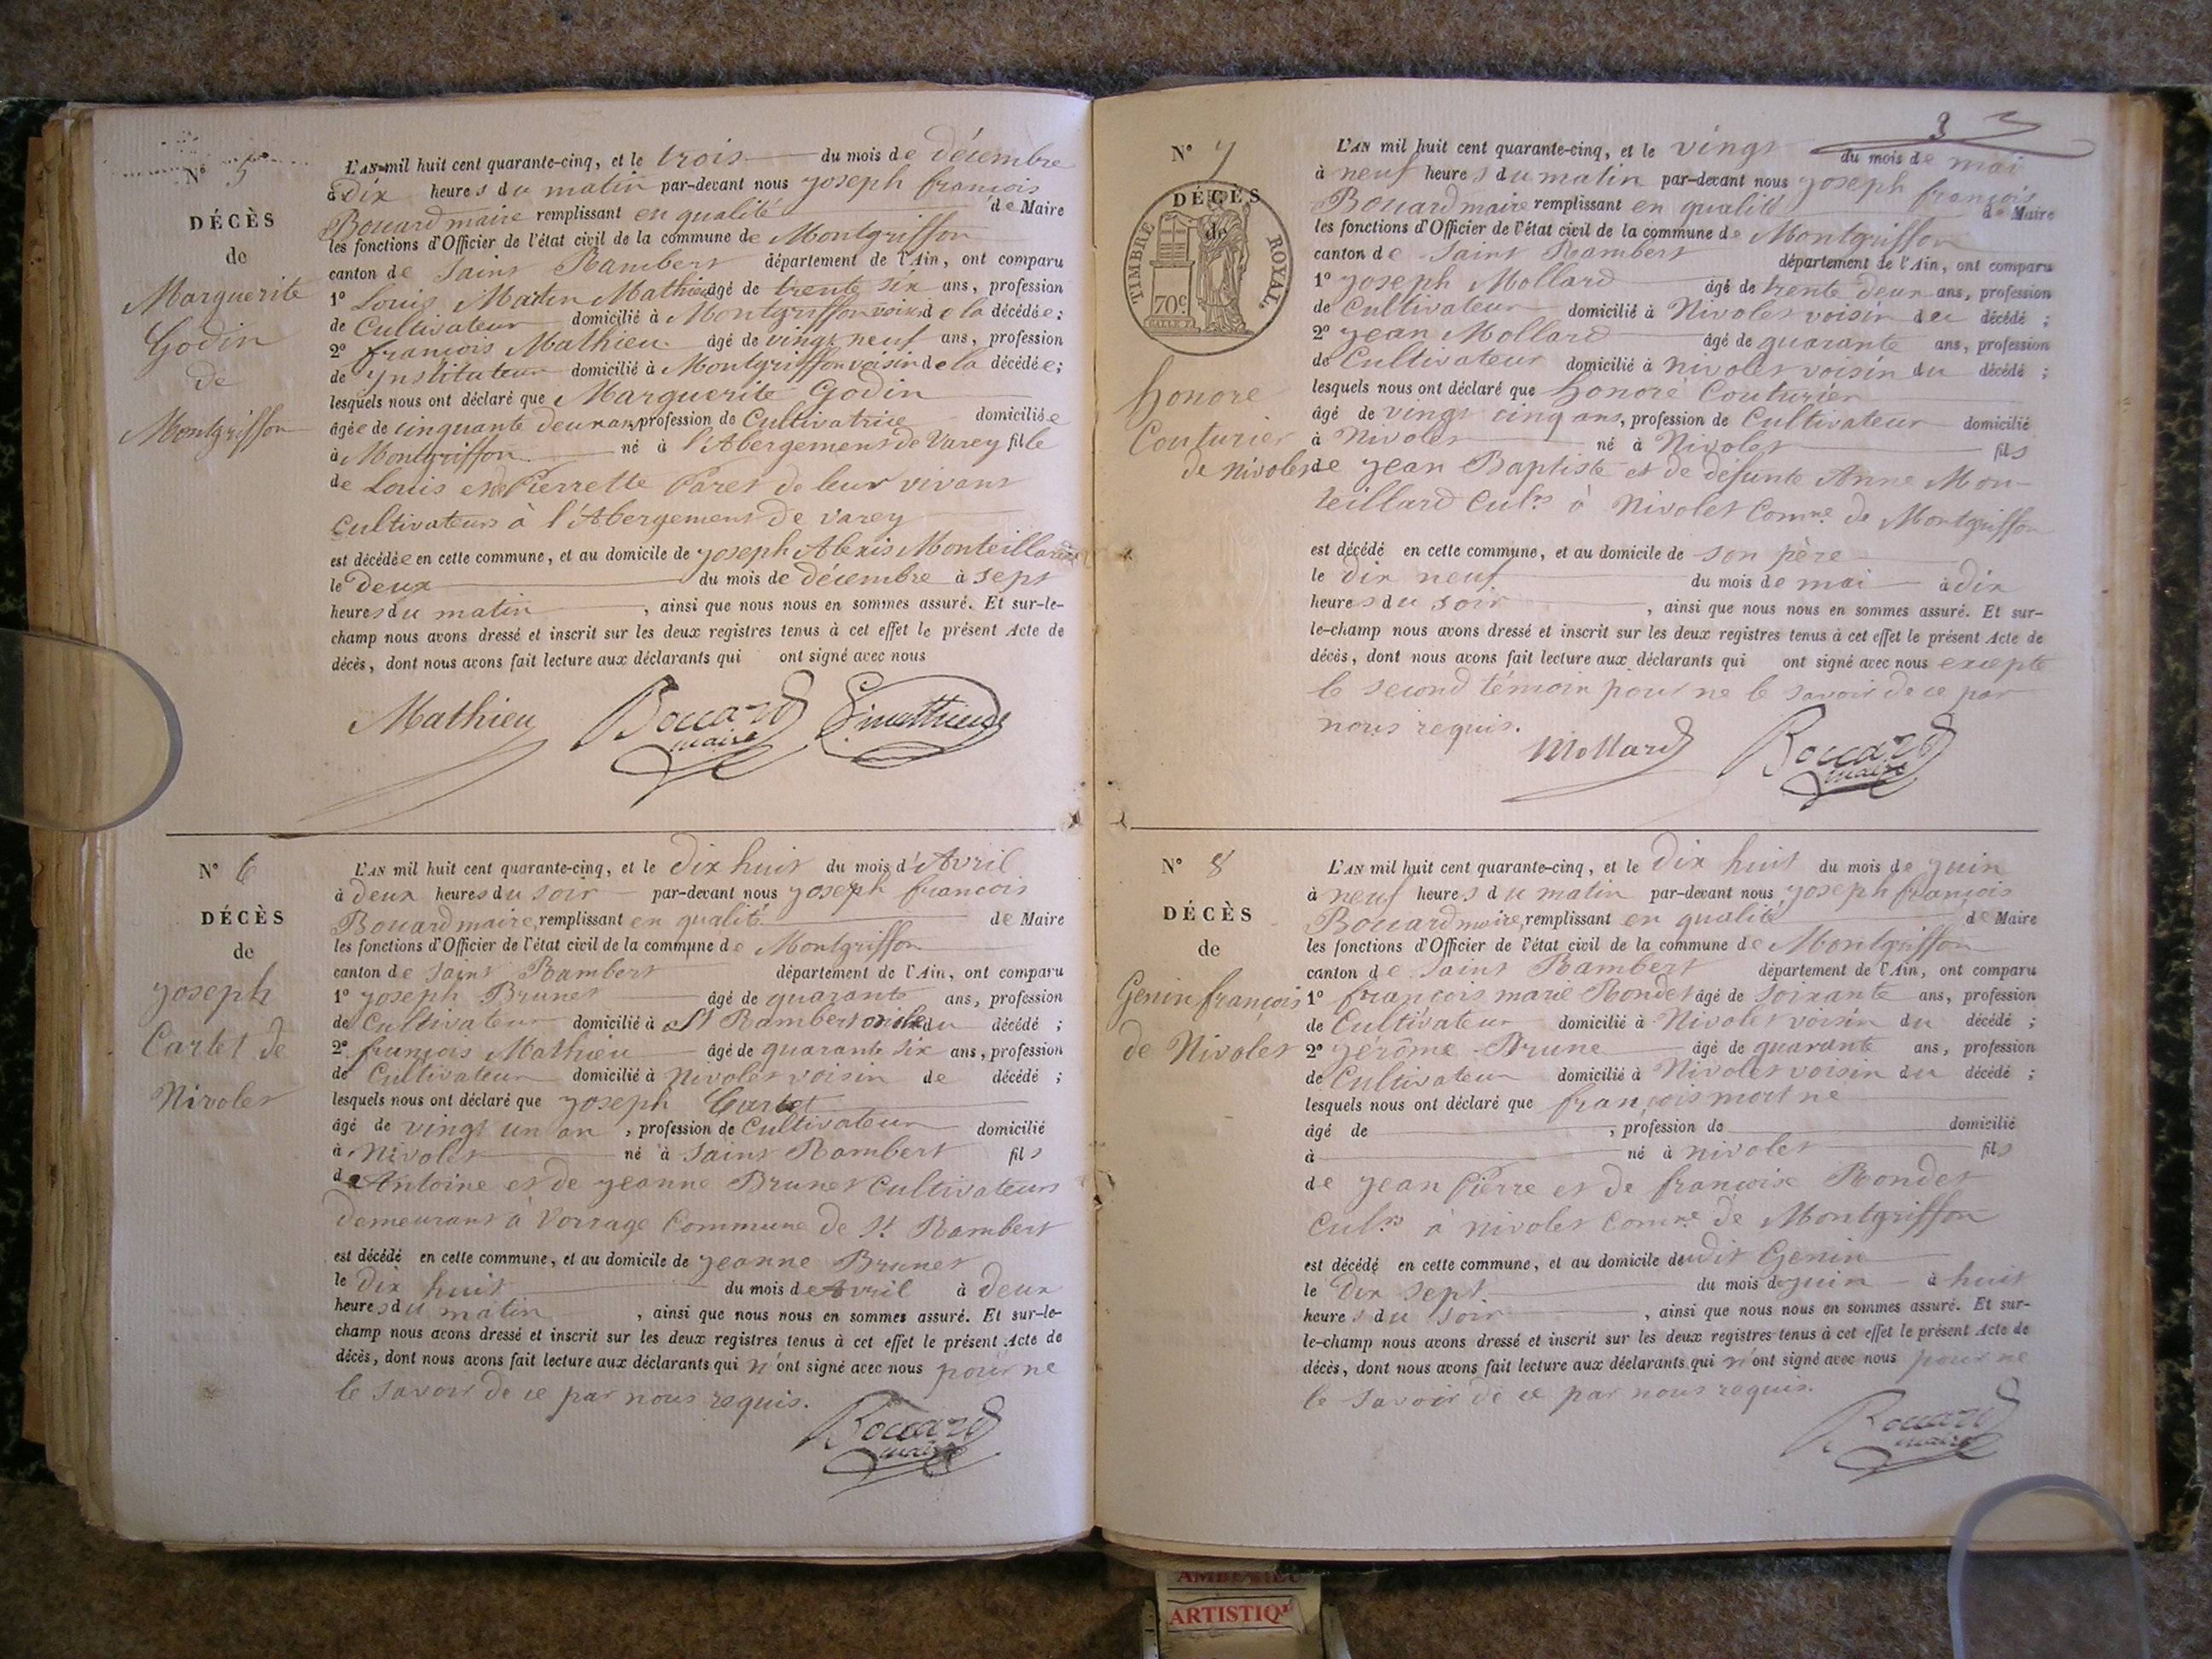 N° 5
DÉCÈS
de
Marguerite
Godin
de
Montgriffon
L'AN mil huit cent quarante-cinq, et le trois du mois de décembre
à dix heures du matin par-devant nous joseph françois
Bouard maire remplissant en qualité de Maire
les fonctions d'Officier de l'état civil de la commune de Montgriffon
canton de Saint Rambert département de l'Ain, ont comparu
1° Louis Martin Mathieu âgé de trente six ans, profession
de Cultivateur domicilié à Montgriffon voisin de la décédée ;
2° françois Mathieu âgé de vingt neuf ans, profession
de jnstituteur domicilié à Montgriffon voisin de la décédée ;
lesquels nous ont déclaré que Marguerite Godin
âgée de cinquante deux ans, profession de Cultivatrice domiciliée
à Montgriffon né à l'Abergement de Varey fille
de Louis et de Pierrette Paret de leur vivant
cultivateurs à l'Abergement de varey
est décédée en cette commune, et au domicile de joseph Alexis Monteillard
le deux du mois de décembre à sept
heures du matin , ainsi que nous nous en sommes assuré. Et sur-le-
champ nous avons dressé et inscrit sur les deux registres tenus à cet effet le présent Acte de
décès, dont nous avons fait lecture aux déclarants qui ont signé avec nous
Mathieu Bouard maire Mathieu
N° 6
DÉCÈS
de
joseph
Cartet de
Nivolet
L'AN mil huit cent quarante-cinq, et le dix huit du mois d'Avril
à deux heures du soir par-devant nous joseph françois
Bouard maire, remplissant en qualité de Maire
les fonctions d'Officier de l'état civil de la commune de Montgriffon
canton de saint Rambert département de l'Ain, ont comparu
1° joseph Brunet âgé de quarante ans, profession
de Cultivateur domicilié à St Rambert oncle du décédé ;
2° françois Mathieu âgé de quarante six ans, profession
de Cultivateur domicilié à Nivolet voisin de décédé ;
lesquels nous ont déclaré que joseph Cartet
âgé de vingt un an , profession de Cultivateur domicilié
à Nivolet né à Saint Rambert fils
de Antoine et de jeanne Brunet Cultivateurs
demeurant à Vorrage Commune de St Rambert
est décédé en cette commune, et au domicile de jeanne Brunet
le dix huit du mois de Avril à deux
heures du matin , ainsi que nous nous en sommes assuré. Et sur-le-
champ nous avons dressé et inscrit sur les deux registres tenus à cet effet le présent Acte de
décès, dont nous avons fait lecture aux déclarants qui n'ont signé avec nous pour ne
le savoir de ce par nous requis.
Bouard maire
3
N° 7
DÉCÈS
de
TIMBRE ROYAL.
70c
honoré
Couturier
de nivolet
L'AN mil huit cent quarante-cinq, et le vingt du mois de mai
à neuf heures du matin par-devant nous joseph françois
Bouard maire remplissant en qualité de Maire
les fonctions d'Officier de l'état civil de la commune de Montgriffon
canton de Saint Rambert département de l'Ain, ont comparu
1° joseph Mollard âgé de trente deux ans, profession
de Cultivateur domicilié à Nivolet voisin du décédé ;
2° jean Mollard âgé de quarante ans, profession
de Cultivateur domicilié à nivolet voisin du décédé ;
lesquels nous ont déclaré que honoré Couturier
âgé de vingt cinq ans, profession de Cultivateur domicilié
à Nivolet né à Nivolet fils
de jean Baptiste et de defunte Anne Mon-
teillard Cul.rs à Nivolet Com.ne de Montgriffon
est décédé en cette commune, et au domicile de son père
le dix neuf du mois de mai à dix
heures du soir , ainsi que nous nous en sommes assuré. Et sur-
le-champ nous avons dressé et inscrit sur les deux registres tenus à cet effet le présent Acte de
décès, dont nous avons fait lecture aux déclarants qui ont signé avec nous excepté
le second témoin pour ne le savoir de ce par
nous requis.
Mollard Bouard maire
N° 8
DÉCÈS
de
Genin françois
de Nivolet
L'AN mil huit cent quarante-cinq, et le dix huit du mois de juin
à neuf heures du matin par-devant nous joseph françois
Bouard maire, remplissant en qualité de Maire
les fonctions d'Officier de l'état civil de la commune de Montgriffon
canton de Saint Rambert département de l'Ain, ont comparu
1° françois marie Rondet âgé de soixante ans, profession
de Cultivateur domicilié à Nivolet voisin du décédé ;
2° jérôme Brune âgé de quarante ans, profession
de Cultivateur domicilié à Nivolet voisin du décédé ;
lesquels nous ont déclaré que françois mort né
âgé de , profession de domicilié
à né à nivolet fils
de jean Pierre et de françoise Rondet
Cul.rs à nivolet com.ne de Montgriffon
est décédé en cette commune, et au domicile du dit Genin
le dix sept du mois de juin à huit
heures du soir , ainsi que nous nous en sommes assuré. Et sur-
le-champ nous avons dressé et inscrit sur les deux registres tenus à cet effet le présent Acte de
décès, dont nous avons fait lecture aux déclarants qui n'ont signé avec nous pour ne
le savoir de ce par nous requis.
Bouard maire
ARTISTIQ